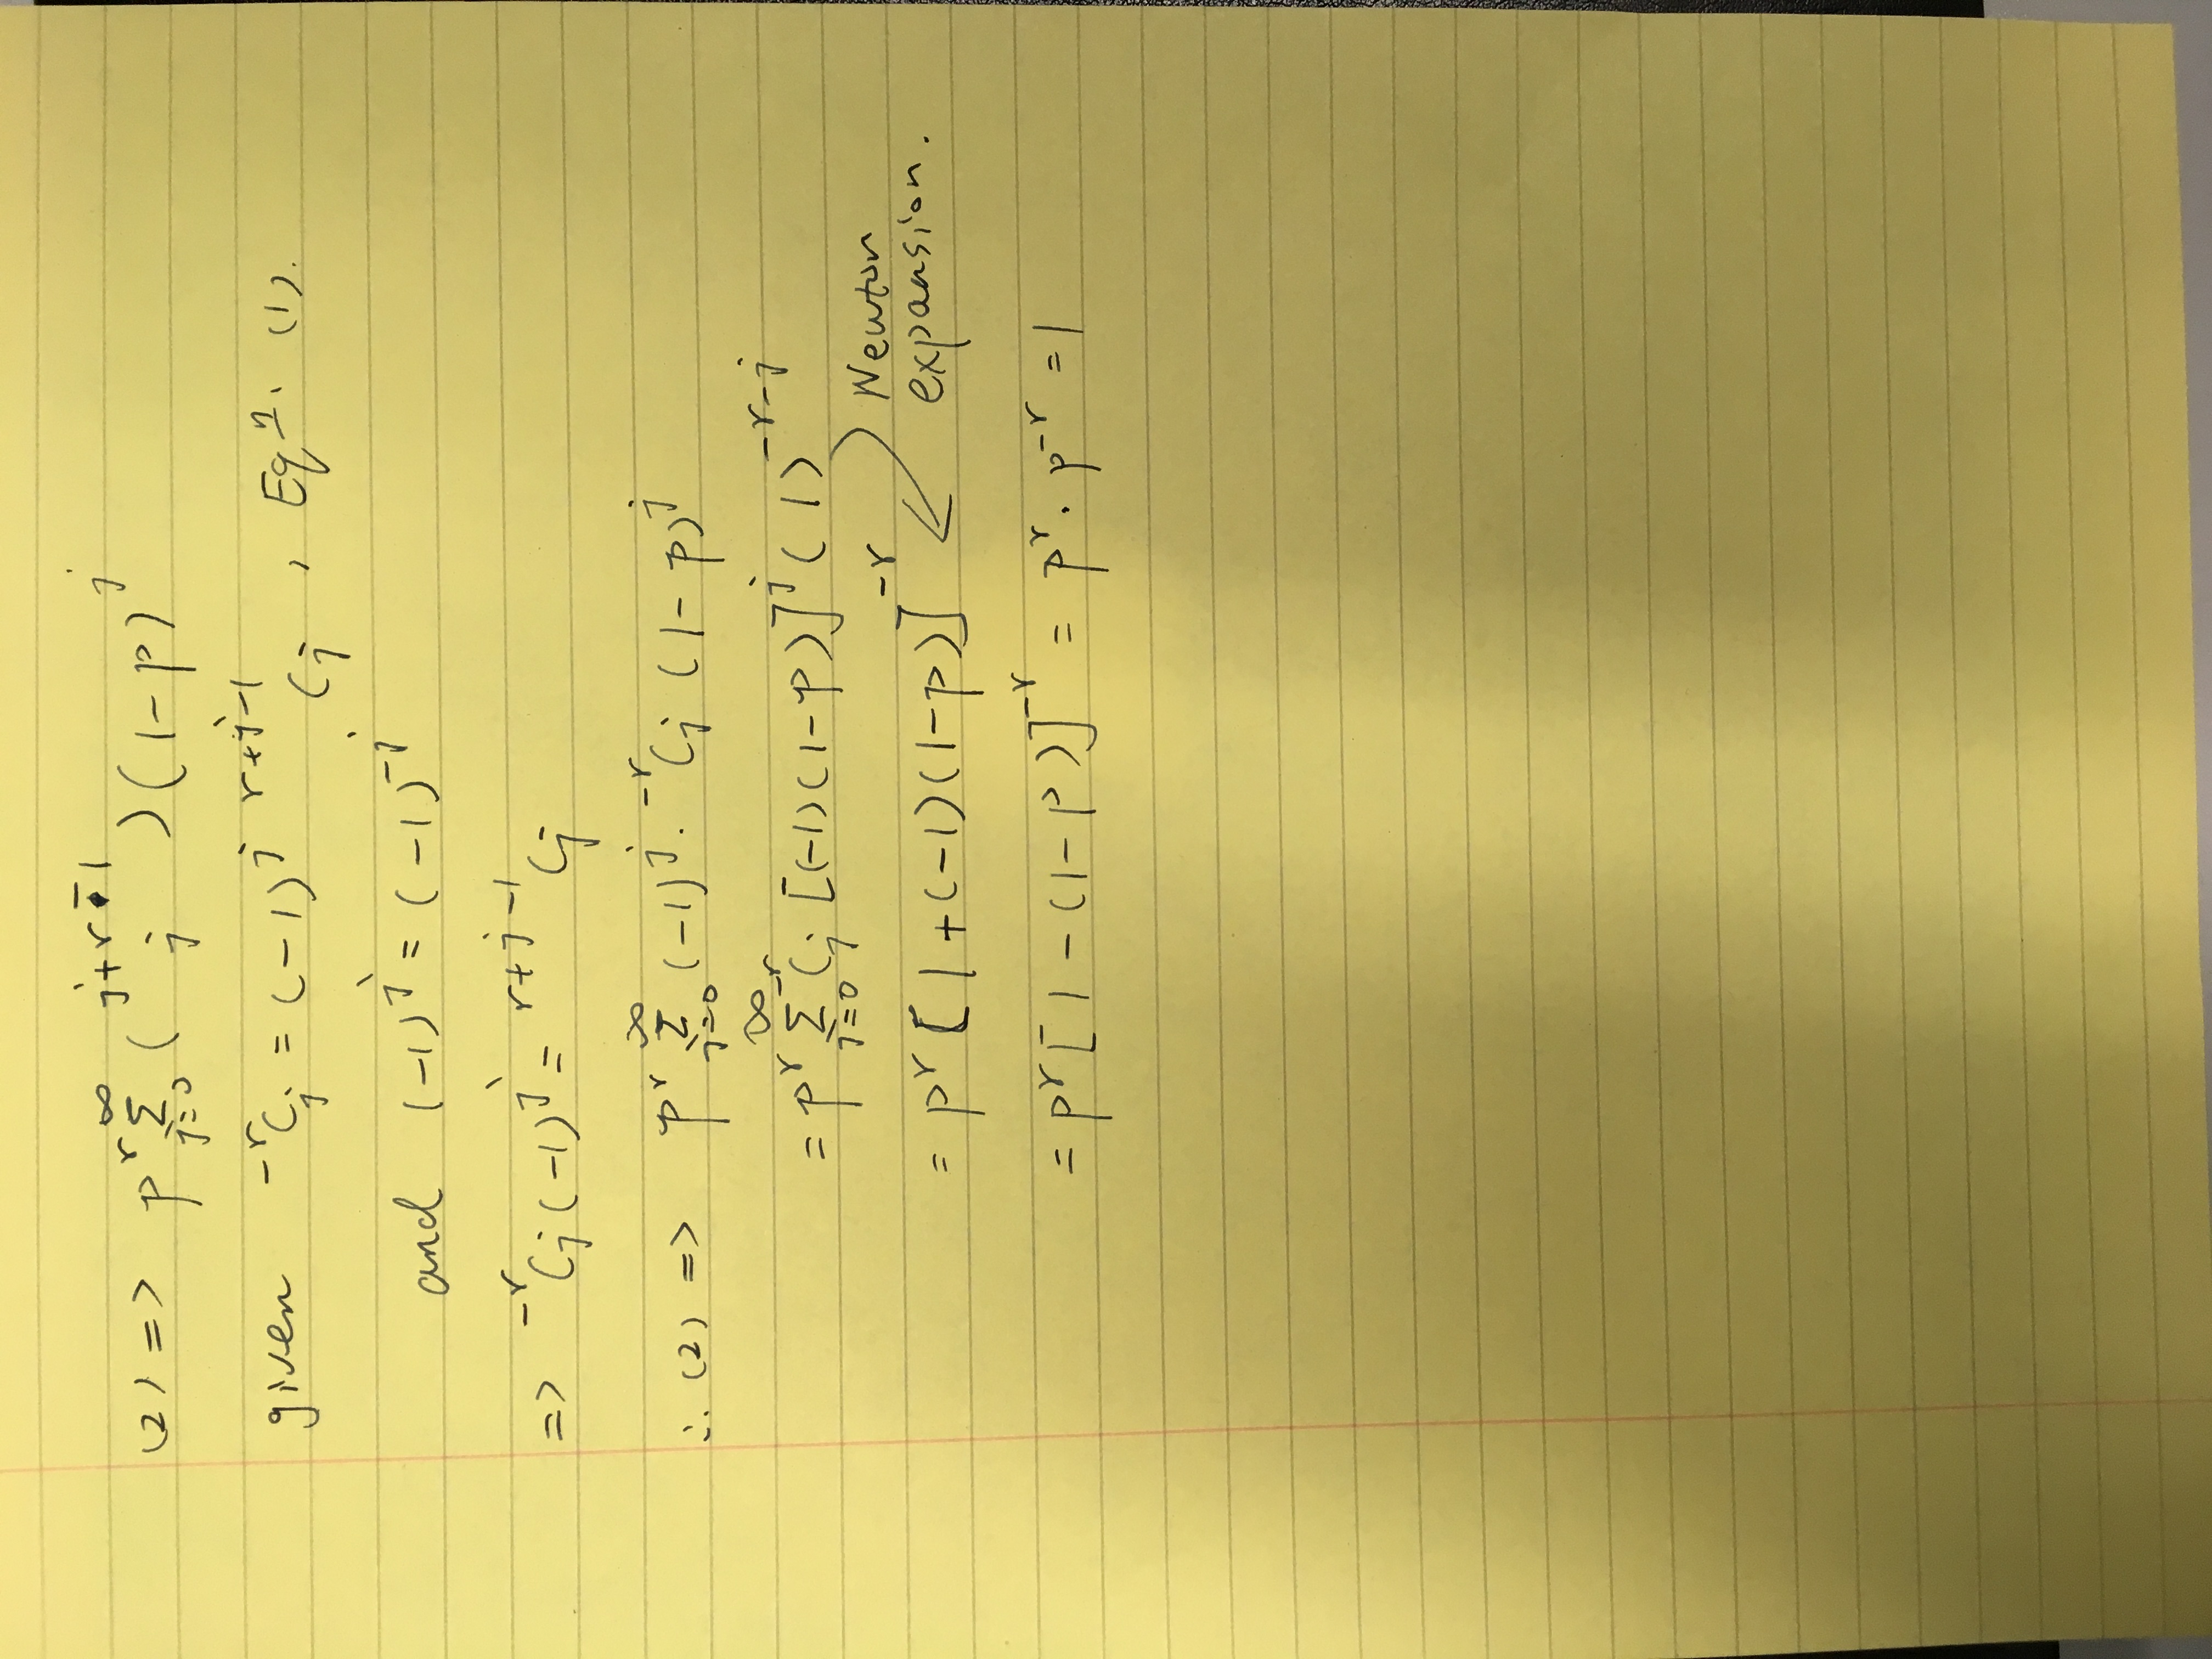 (2) => p^r ∑_{j=0}^{∞} (j+r-1 j) (1-p)^j
given ^{-r}C_j = (-1)^j ^{r+j-1}C_j , Eqn. (1).
and (-1)^j = (-1)^{-j}
=> ^{-r}C_j (-1)^j = ^{r+j-1}C_j
∴ (2) => p^r ∑_{j=0}^{∞} (-1)^j · ^{-r}C_j (1-p)^j
= p^r ∑_{j=0}^{∞} ^{-r}C_j [(-1)(1-p)]^j (1)^{-r-j}
Newton
expansion.
= p^r [1+(-1)(1-p)]^{-r}
= p^r [1-(1-p)]^{-r} = p^r · p^{-r} = 1